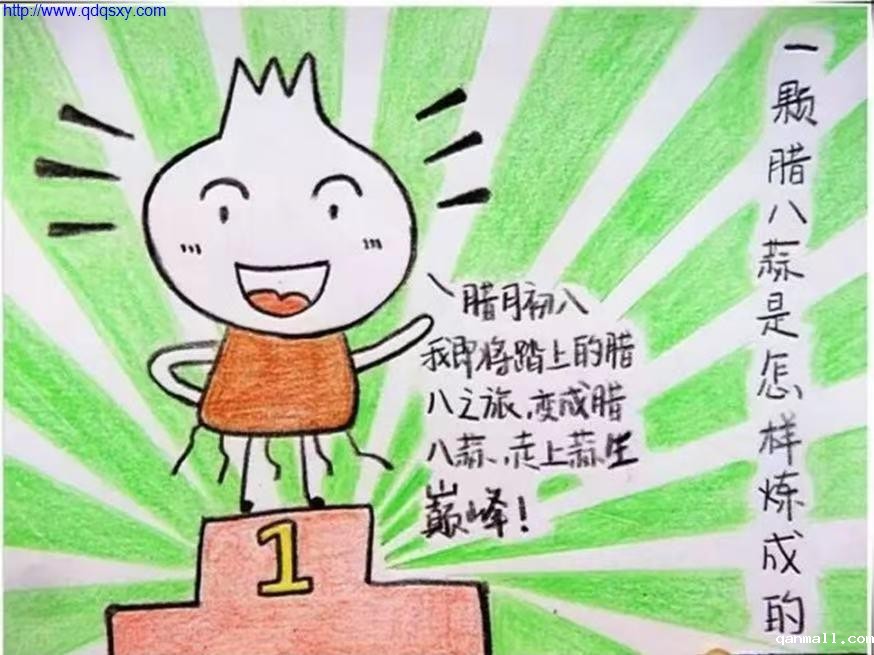 http://www.qdqsxy.com
一颗腊八蒜是怎样炼成的
腊月初八
我即将踏上的腊
八之旅,变成腊
八蒜,走上蒜生
巅峰!
1
qanmall.com